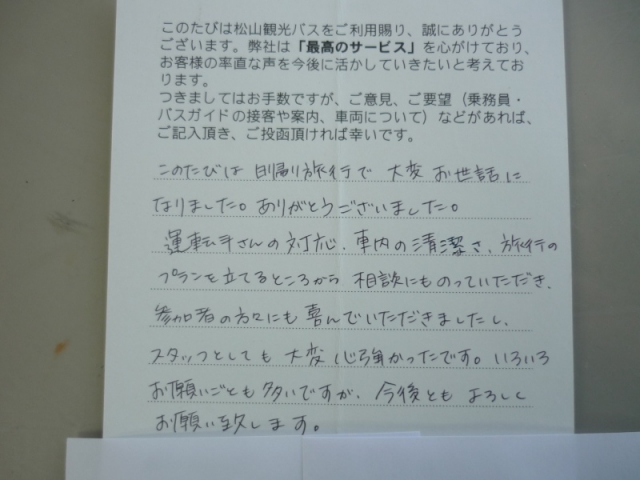 このたびは松山観光バスをご利用賜り、誠にありがとう
ございます。弊社は「最高のサービス」を心がけており、
お客様の率直な声を今後に活かしていきたいと考えてお
ります。
つきましてはお手数ですが、ご意見、ご要望（乗務員・
バスガイドの接客や案内、車両について）などがあれば、
ご記入頂き、ご投函頂ければ幸いです。
このたびは 日帰り旅行で 大変 お世話に
なりました。ありがとうございました。
運転手さんの対応、車内の清潔さ、旅行の
プランを立てるところから 相談にものっていただき、
参加者の方々にも 喜んでいただきましたし、
スタッフとしても 大変 心強かったです。いろいろ
お願いごとも 多いですが、今後とも よろしく
お願い致します。